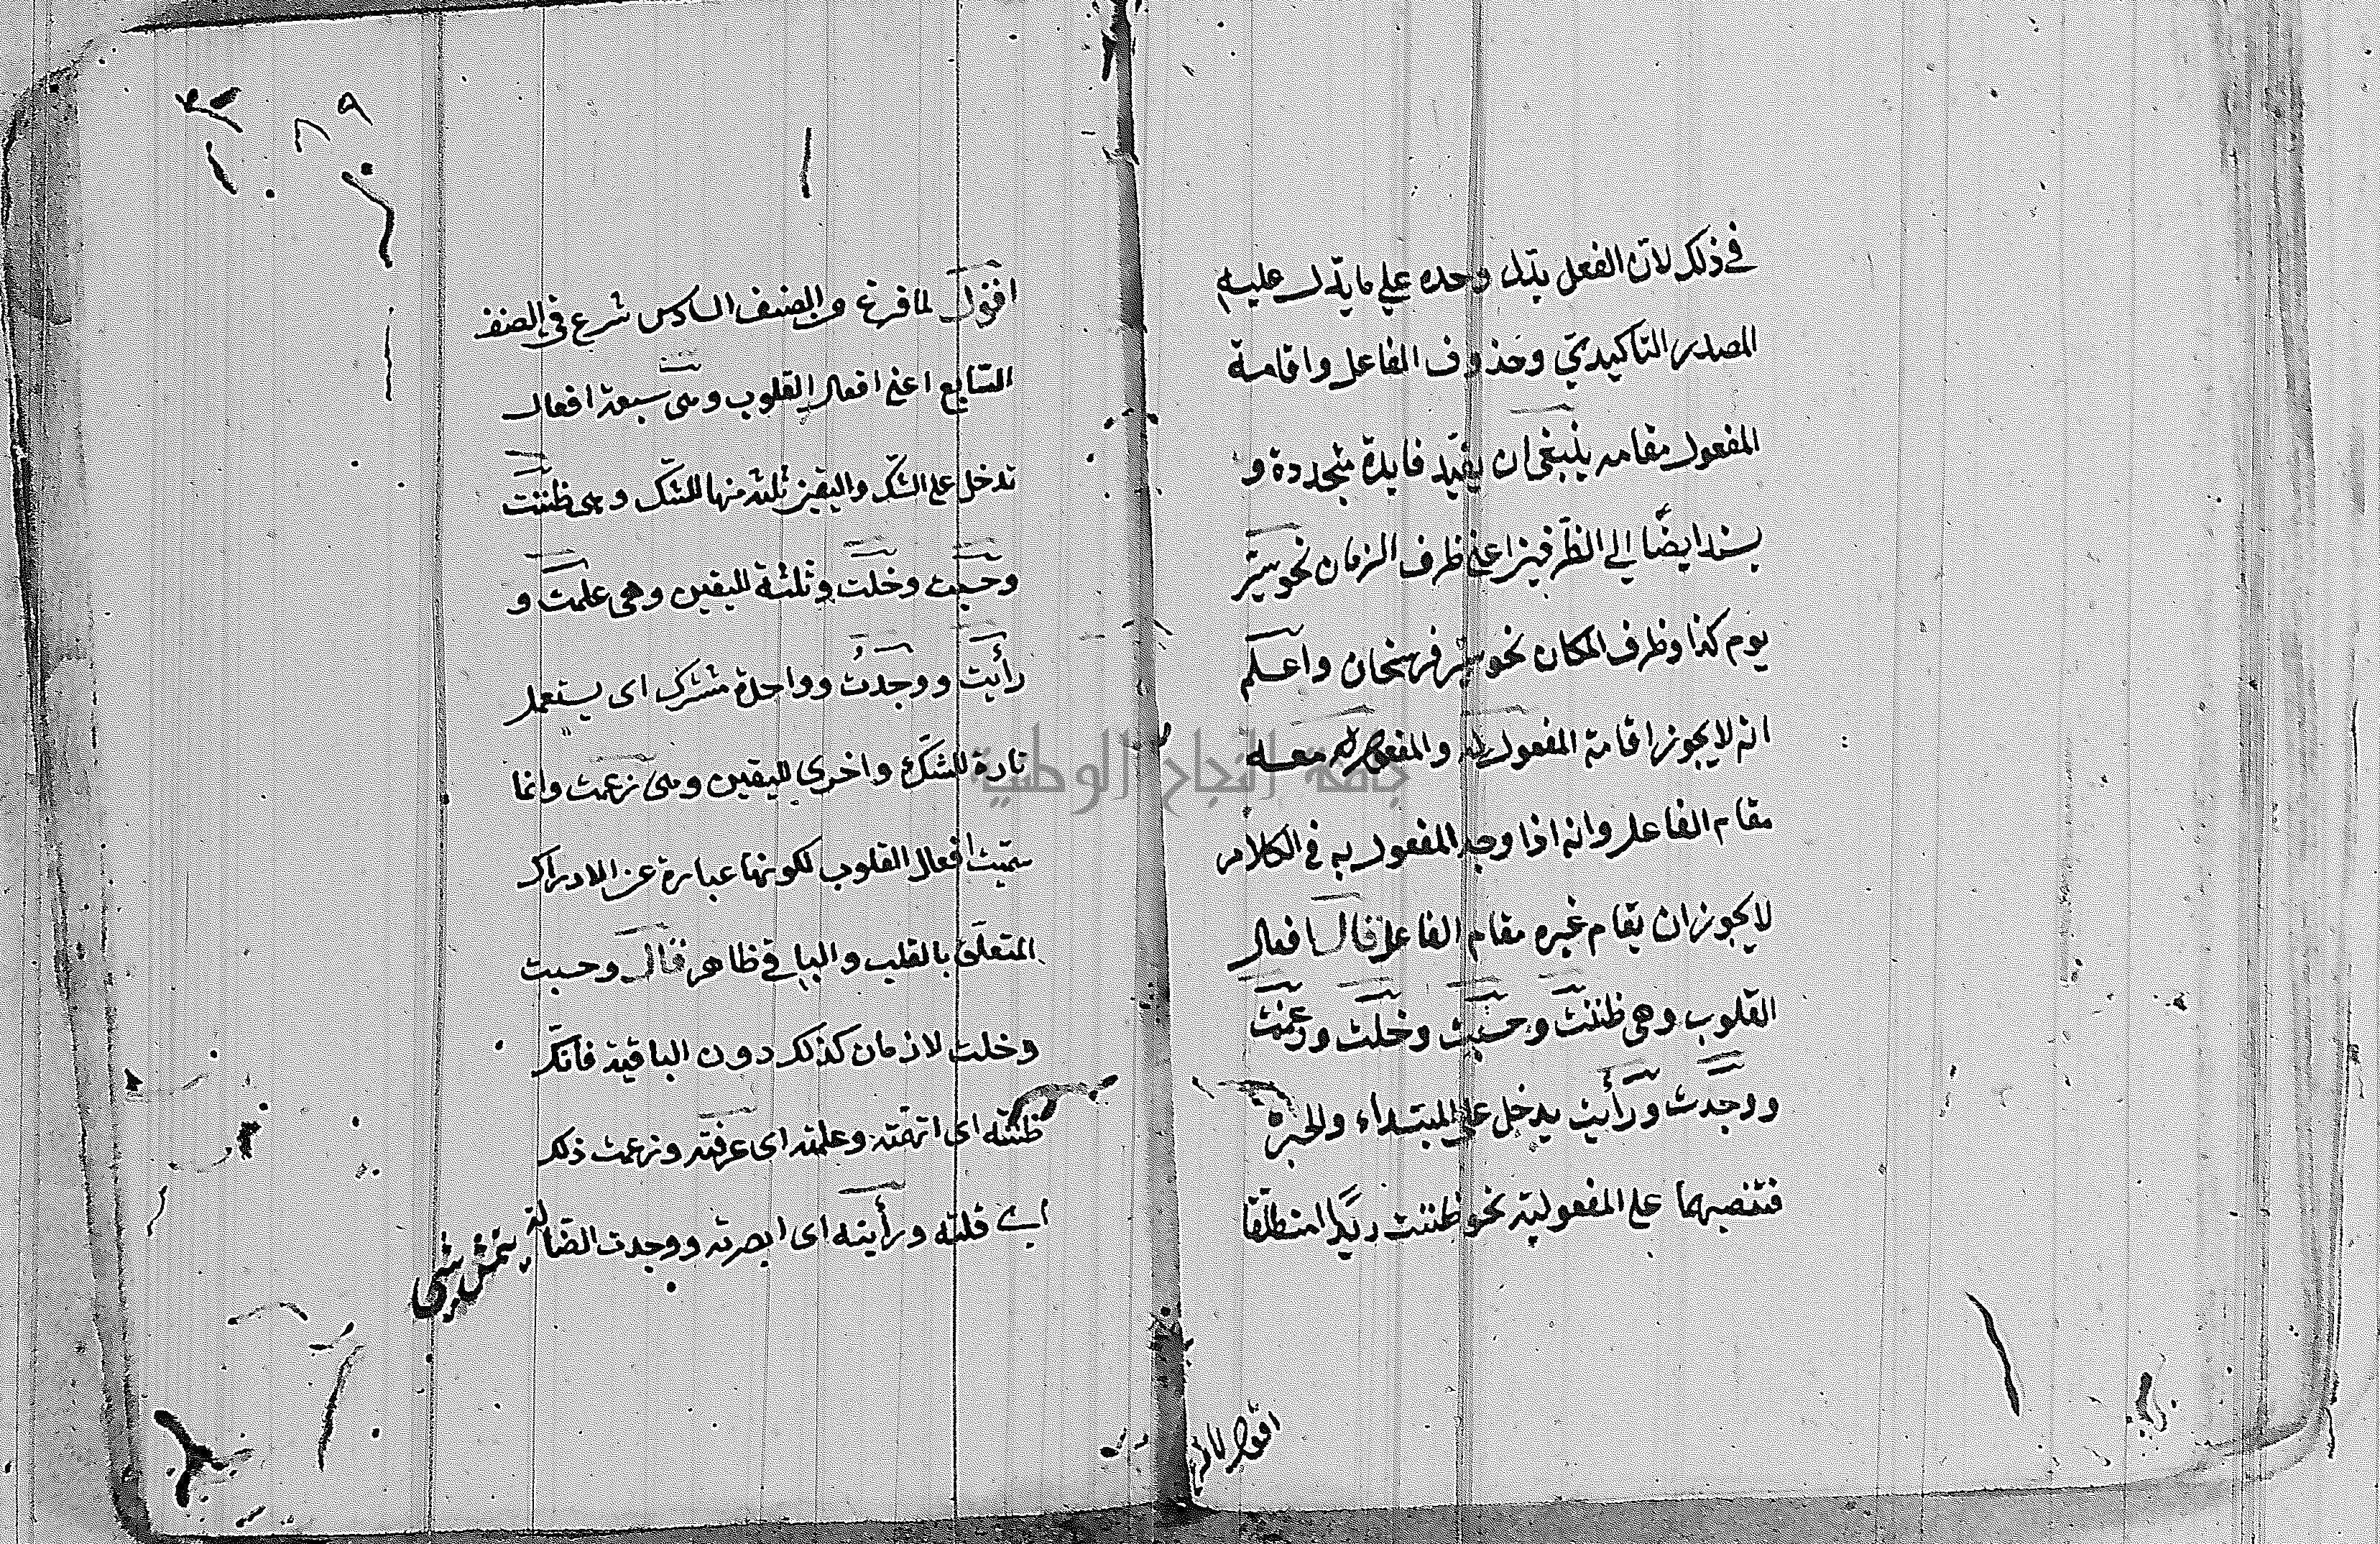 في ذلك لان الفعل يدل وحده علي ما يدل عليه
المصدر التاكيدي وحذوف الفاعل واقامة
المفعول مقامه ينبغي ان يفيد فايدة متجددة و
يسند ايضًا الي الظرفين اعني ظرف الزمان نحو سير
يوم كذا وظرف المكان نحو سير فرسخان واعلم
انه لا يجوز اقامة المفعول له والمفعول معه
مقام الفاعل وانه اذا وجد المفعول به في الكلام
لا يجوز ان يقام غيره مقام الفاعل قال افعال
القلوب وهي ظننت وحسبت وخلت وزعمت
ووجدت ورأيت يدخل على المبتداء والخبر
فتنصبهما على المفعولية نحو ظننت زيدا منطلقا
اقول لما فرغ
اقول لما فرغ من الصنف السادس شرع في الصنف
السابع اعني افعال القلوب وهي سبعة افعال
تدخل على الشك واليقين ثلثة منها للشك وهي ظننت
وحسبت وخلت وثلثة لليقين وهي علمت و
رأيت ووجدت وواحدة مشترك اى يستعمل
تارة للشك واخرى لليقين وهى زعمت وانما
سميت افعال القلوب لكونها عبارة عن الادراك
المتعلق بالقلب والباقي ظاهر قال وحسبت
وخلت لازمان كذلك دون الباقية فانك
ظننته اى اتهمته وعلمته اى عرفته وزعمت ذلك
اي قلته ورأيته اى ابصرته ووجدت الضالة
جامعة النجاح الوطنية